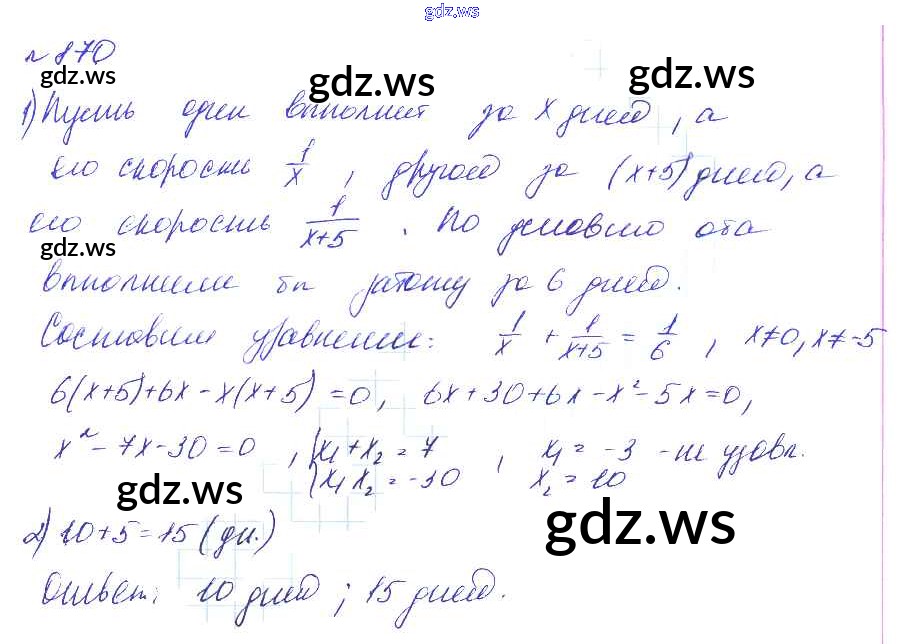 gdz.ws
№ 870
gdz.ws gdz.ws gdz.ws
1) Пусть один выполнит за x дней, а
его скорость 1/x, другой за (x+5) дней, а
его скорость 1/(x+5). По условию оба
gdz.ws
выполнили бы работу за 6 дней.
Составим уравнение: 1/x + 1/(x+5) = 1/6, x≠0, x≠-5
6(x+5)+6x-x(x+5)=0, 6x+30+6x-x²-5x=0,
x²-7x-30=0, { x₁+x₂=7, x₁=-3 - не удовл.
{ x₁x₂=-30 x₂=10
gdz.ws gdz.ws
2) 10+5=15 (дн.)
Ответ: 10 дней; 15 дней.